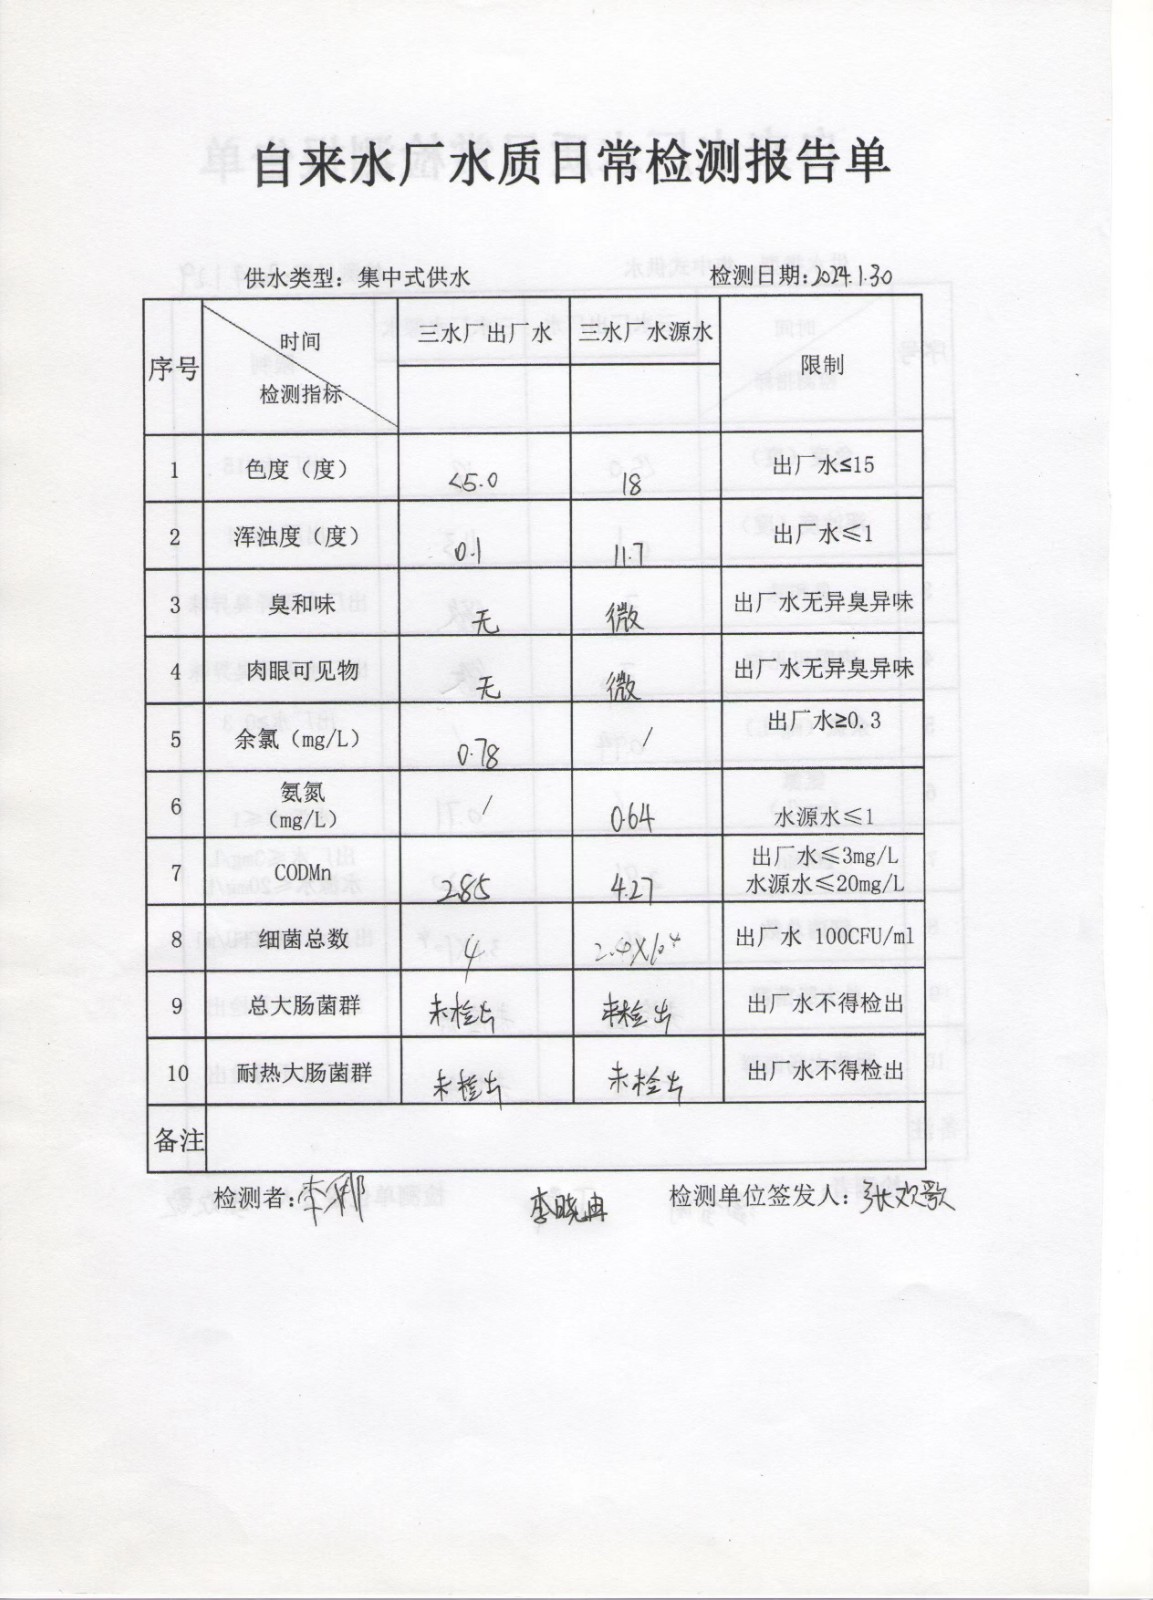 自来水厂水质日常检测报告单
供水类型：集中式供水 检测日期：2024.1.30
序号 时间 检测指标 三水厂出厂水 三水厂水源水 限制
1 色度（度） <5.0 18 出厂水≤15
2 浑浊度（度） 0.1 11.7 出厂水≤1
3 臭和味 无 微 出厂水无异臭异味
4 肉眼可见物 无 微 出厂水无异臭异味
5 余氯（mg/L） 0.78 / 出厂水≥0.3
6 氨氮（mg/L） / 0.64 水源水≤1
7 CODMn 2.85 4.27 出厂水≤3mg/L 水源水≤20mg/L
8 细菌总数 4 出厂水 100CFU/ml
9 总大肠菌群 未检出 未检出 出厂水不得检出
10 耐热大肠菌群 未检出 未检出 出厂水不得检出
备注
检测者： 李晓冉 检测单位签发人：张欢歌